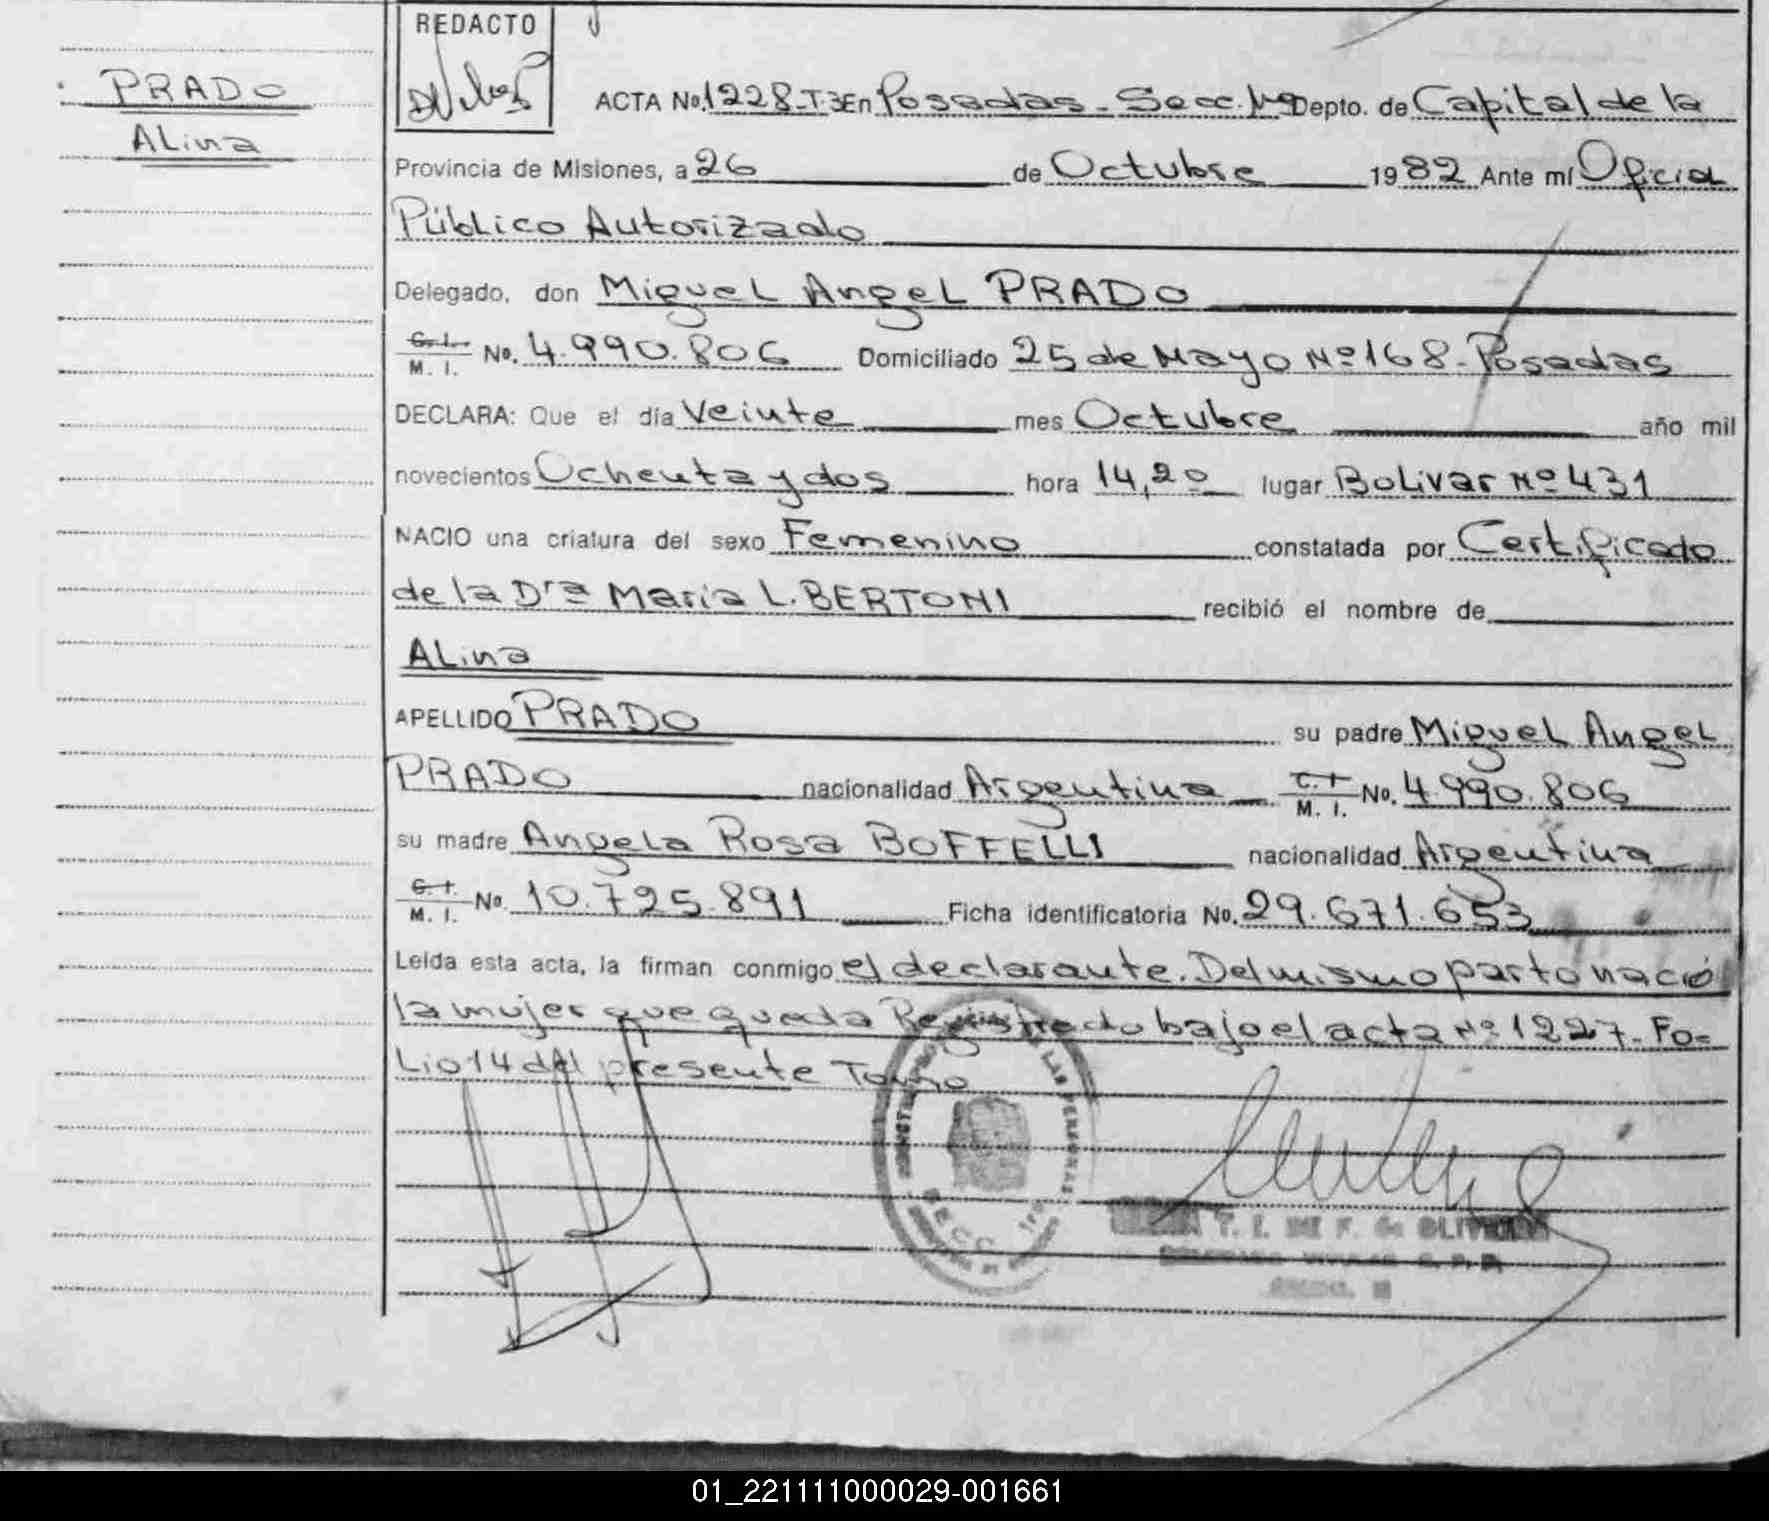 REDACTO
PRADO
ALina
ACTA No. 1228-T.3 En Posadas - Secc. 1ra Depto. de Capital de la
Provincia de Misiones, a 26 de Octubre 1982 Ante mí Oficial
Público Autorizado
Delegado, don Miguel Angel PRADO
C. I. M. I. No. 4.990.806 Domiciliado 25 de Mayo Nº 168 - Posadas
DECLARA: Que el día Veinte mes Octubre año mil
novecientos Ochenta y dos hora 14,20 lugar Bolivar Nº 431
NACIO una criatura del sexo Femenino constatada por Certificado
de la Dra Maria L. BERTONI recibió el nombre de
ALina
APELLIDO PRADO su padre Miguel Angel
PRADO nacionalidad Argentina C. I. M. I. No. 4.990.806
su madre Angela Rosa BOFFELLI nacionalidad Argentina
C. I. M. I. No. 10.725.891 Ficha identificatoria No. 29.671.653
Leída esta acta, la firman conmigo el declarante. Del mismo parto nació
la mujer que queda Registrado bajo el acta Nº 1227 - Fo=
Lio 14 del presente Tomo
LAS PERSONAS
SECC. 1ra
T. I. DE F. de OLIVEIRA
01_221111000029-001661